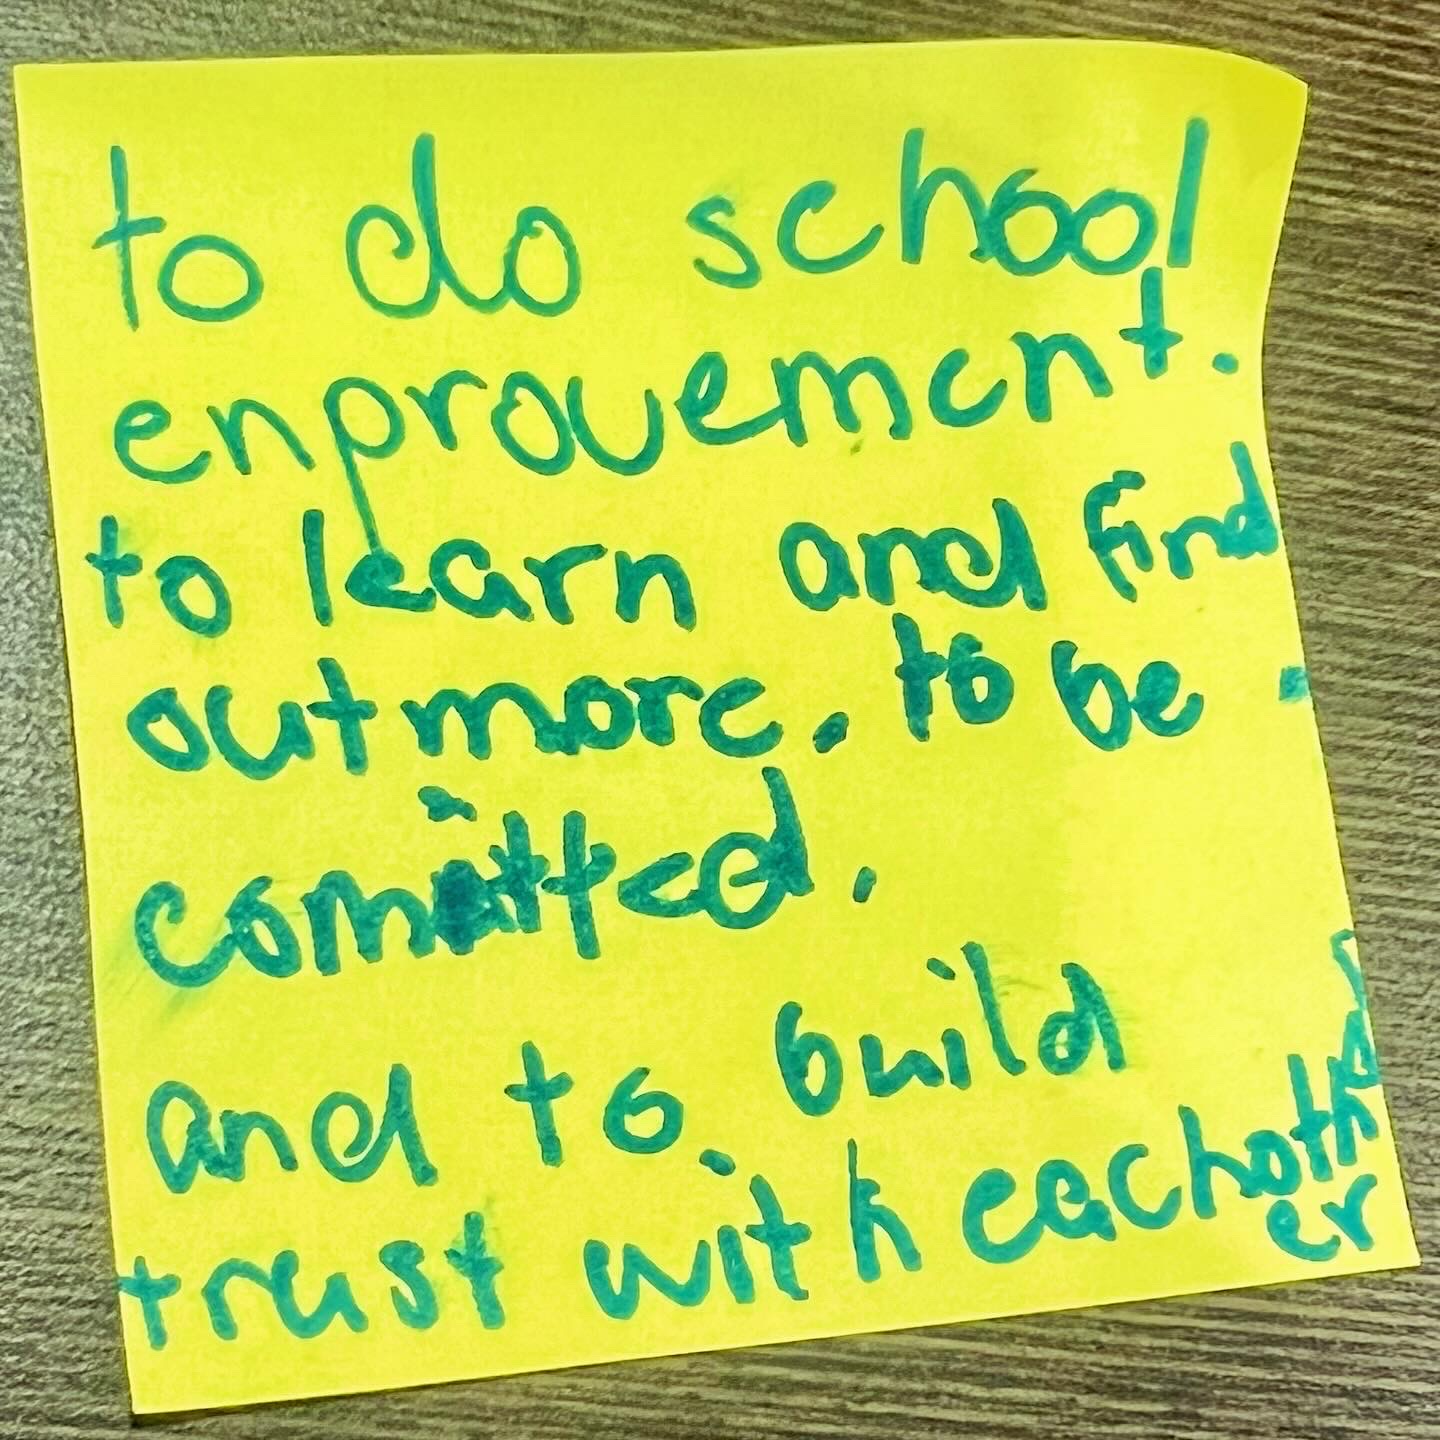 to do school
enprovement.
to learn and find
out more. to be
comitted.
and to build
trust with each oth
er